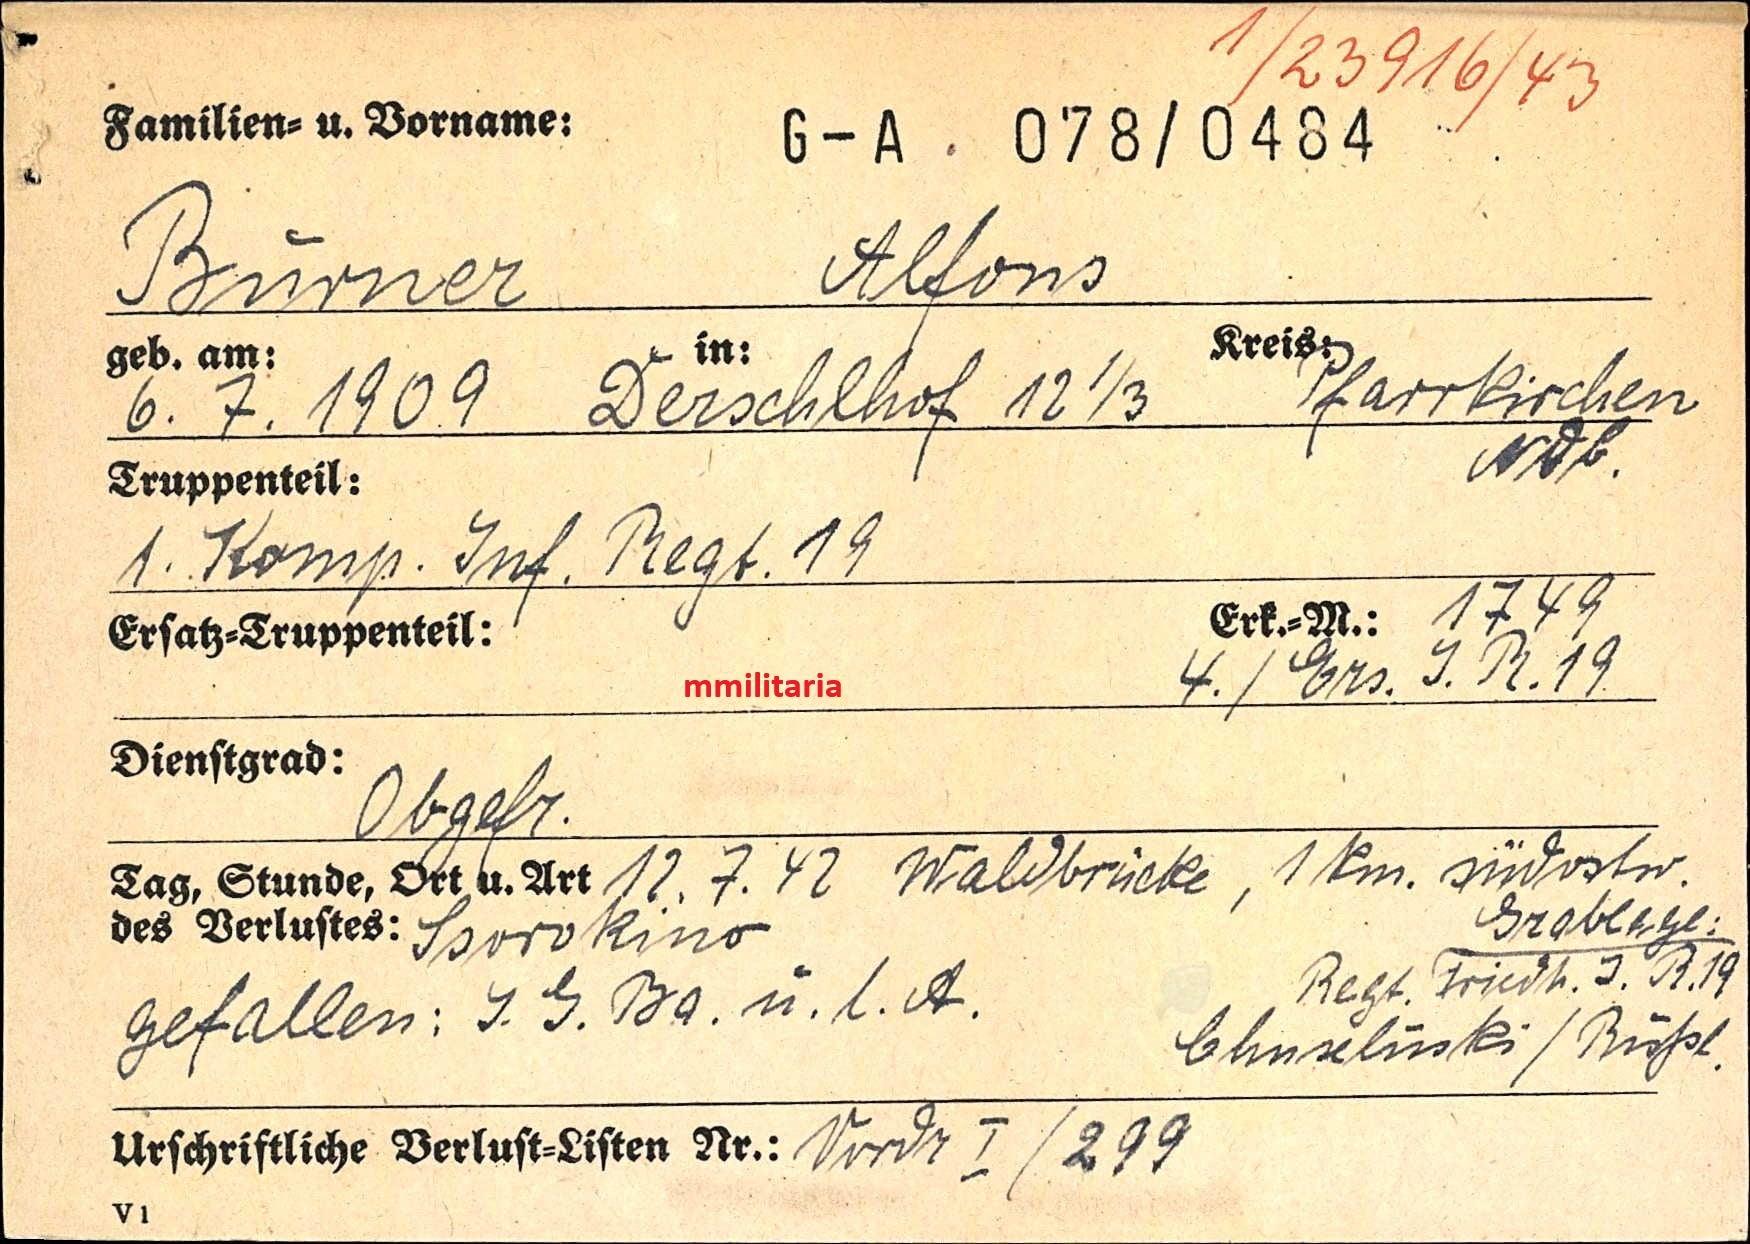 1/23916/43
Familien- u. Vorname: G-A 078/0484
Burner Alfons
geb. am: in: Kreis:
6. 7. 1909 Derschlhof 12 1/3 Pfarrkirchen
Ndb.
Truppenteil:
1. Komp. Inf. Regt. 19
Ersatz-Truppenteil: Erk.-M.: 1749
4./Ers. I. R. 19
mmilitaria
Dienstgrad:
Obgefr.
Tag, Stunde, Ort u. Art 12. 7. 42 Waldbrücke, 1 km. südostw.
des Verlustes: Ssorokino Grablage:
gefallen: I. G. Ba. u. l. A. Regt. Friedh. I. R. 19
/ Rußl.
Urschriftliche Verlust-Listen Nr.: Vordr I /299
V 1